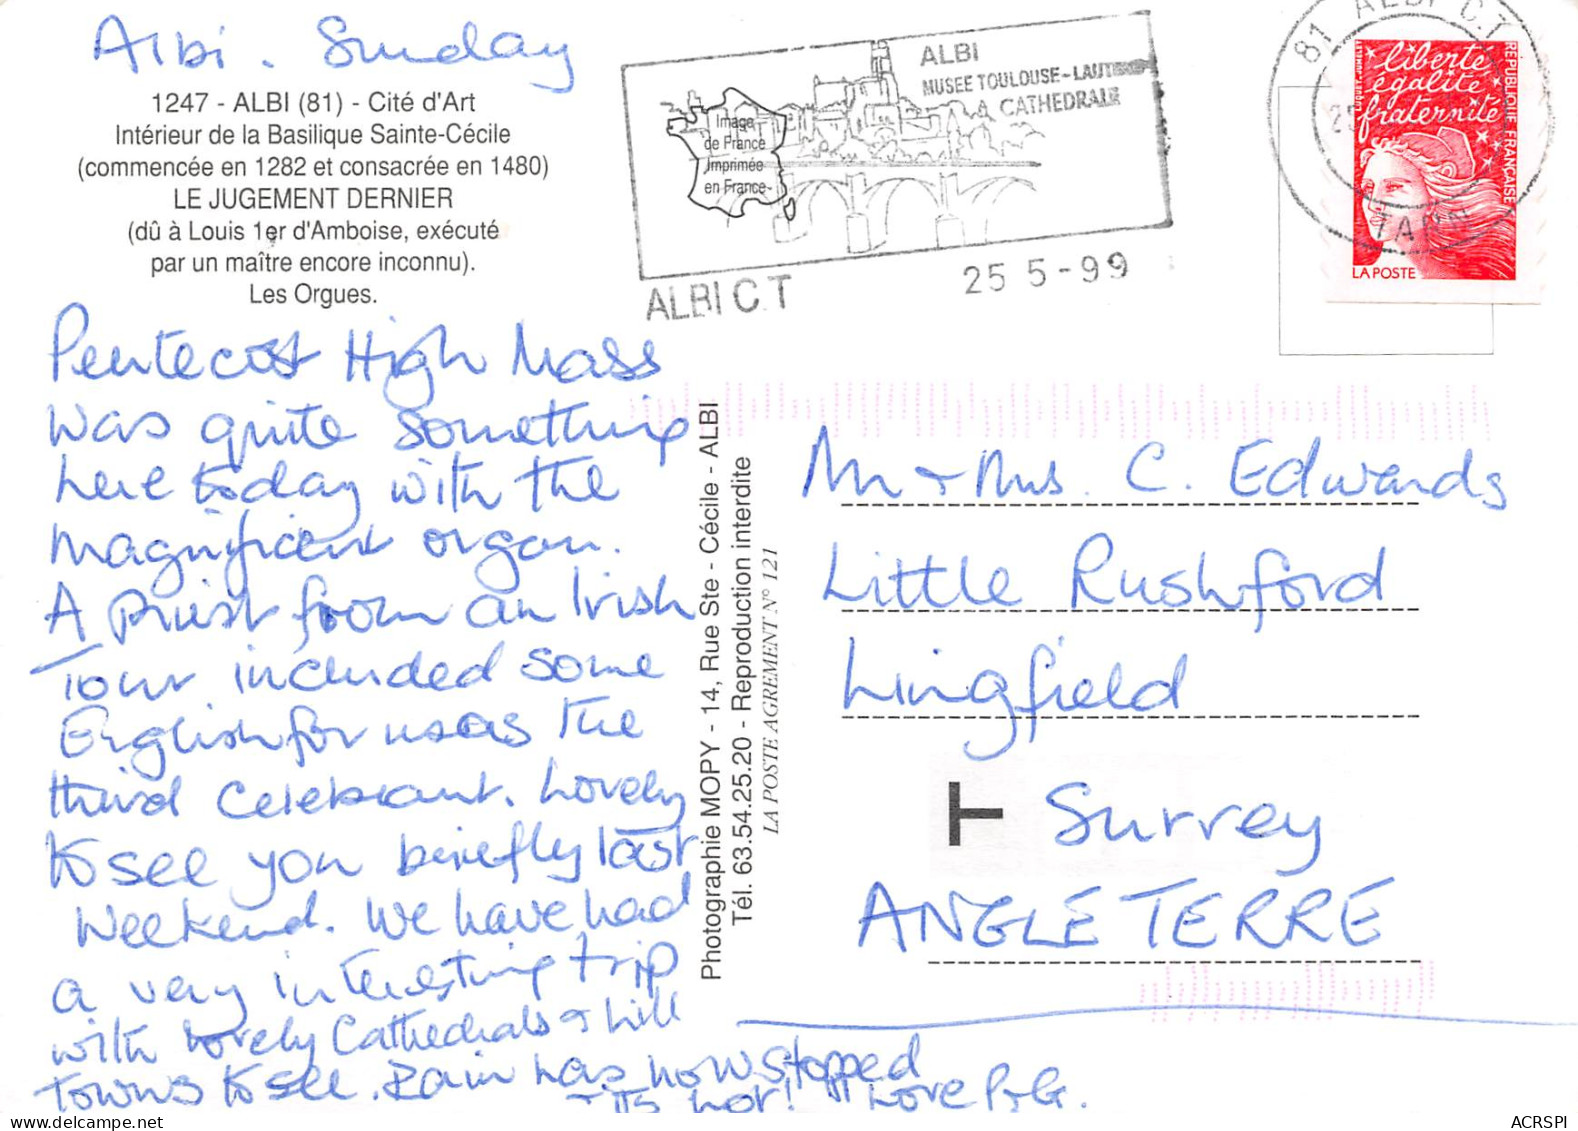 Albi. Sunday
1247 - ALBI (81) - Cité d'Art
Intérieur de la Basilique Sainte-Cécile
(commencée en 1282 et consacrée en 1480)
LE JUGEMENT DERNIER
(dû à Louis 1er d'Amboise, exécuté
par un maître encore inconnu).
Les Orgues.
Pentecost High Mass
was quite something
here today with the
magnificent organ.
A Priest from an Irish
Tour included some
English for us as the
third celebrant. Lovely
to see you briefly last
weekend. We have had
a very interesting trip
with lovely Cathedrals & hill
towns to see. Rain has now stopped
& its hot! Love P & G.
Image
de France
Imprimée
en France
ALBI
MUSEE TOULOUSE-LAUT
CATHEDRALE
ALBI C.T
25 5-99
81 ALBI C.T
TARN
liberté
égalité
fraternité
RÉPUBLIQUE FRANÇAISE
LA POSTE
Photographie MOPY - 14, Rue Ste - Cécile - ALBI
Tél. 63.54.25.20 - Reproduction interdite
LA POSTE AGREMENT N° 121
Mr & Mrs. C. Edwards
Little Rushford
Lingfield
T Surrey
ANGLETERRE
ACRSPI